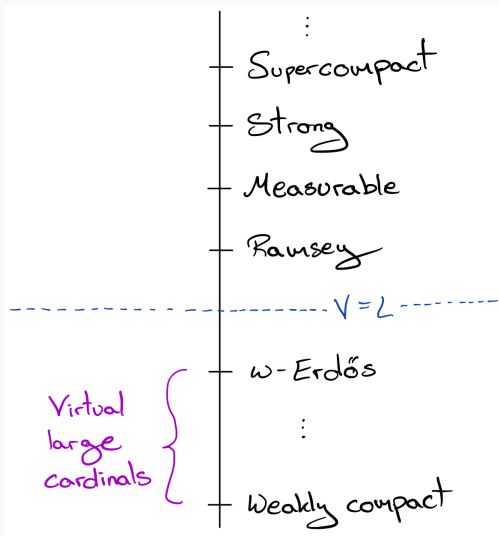 ⋮
Supercompact
Strong
Measurable
Ramsey
V = L
ω-Erdős
Virtual
large
cardinals
⋮
Weakly compact